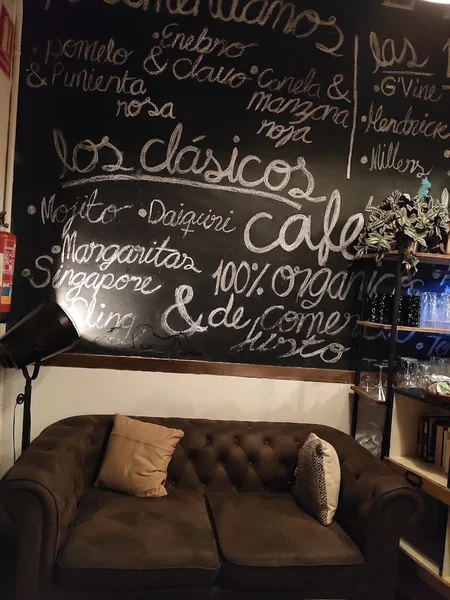 · pomelo & Pimienta rosa
· Enebro & clavo
· Canela & manzana roja
las
· G'Vine
· Hendrick
· Millers
los clásicos
· Mojito · Daiquiri
· Margaritas
· Singapore Sling
café
100% orgánic
& de comer
justo